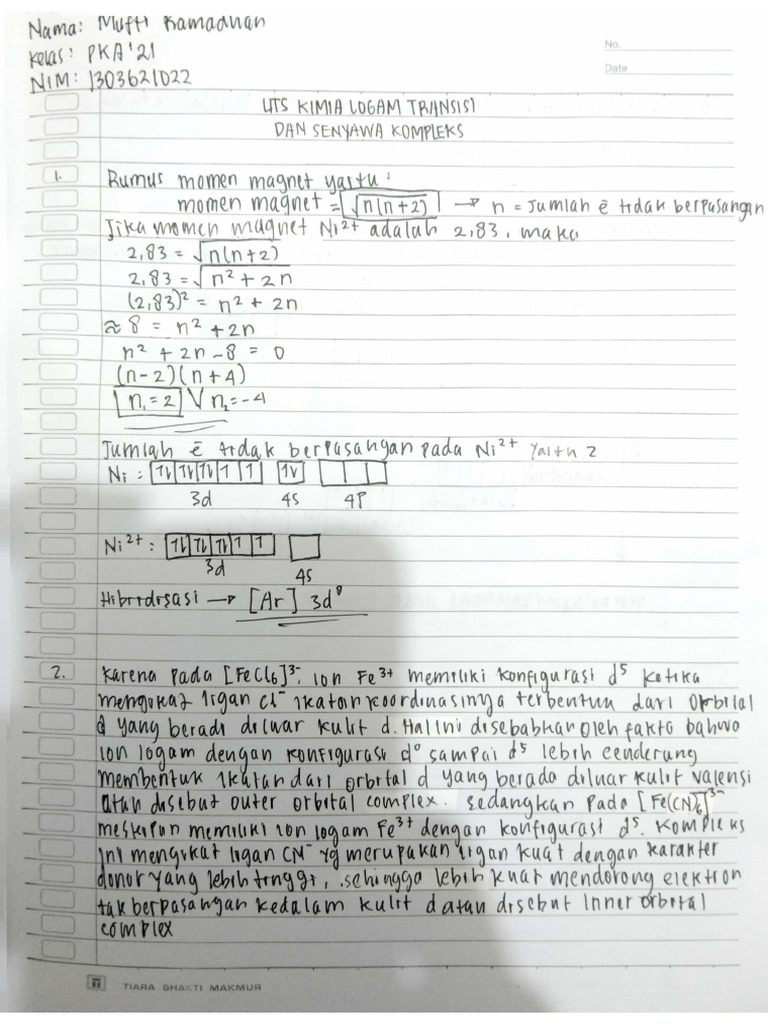 Nama: Mufti Ramadhan
Kelas: PKA'21
NIM: 1303621022
No.
Date
UTS KIMIA LOGAM TRANSISI
DAN SENYAWA KOMPLEKS
1. Rumus momen magnet yaitu:
momen magnet = √n(n+2) → n = Jumlah ē tidak berpasangan
Jika momen magnet Ni²⁺ adalah 2,83, maka
2,83 = √n(n+2)
2,83 = √n² + 2n
(2,83)² = n² + 2n
≈ 8 = n² + 2n
n² + 2n - 8 = 0
(n-2)(n+4)
n₁ = 2 V n₂ = -4
Jumlah ē tidak berpasangan pada Ni²⁺ yaitu 2
Ni : 1l 1l 1l 1 1 1l
3d 4s 4p
Ni²⁺ : 1l 1l 1l 1 1
3d
4s
Hibridisasi → [Ar] 3d⁸
2. Karena pada [FeCl6]³⁻, ion Fe³⁺ memiliki konfigurasi d⁵ ketika
mengikat ligan Cl⁻ ikatan koordinasinya terbentuk dari orbital
d yang berada diluar kulit d. Hal ini disebabkan oleh fakta bahwa
ion logam dengan konfigurasi d⁰ sampai d⁵ lebih cenderung
membentuk ikatan dari orbital d yang berada diluar kulit valensi
atau disebut outer orbital complex. Sedangkan Pada [Fe(CN)6]³⁻
meskipun memiliki ion logam Fe³⁺ dengan konfigurasi d⁵. Kompleks
ini mengikat ligan CN⁻ yg merupakan ligan kuat dengan karakter
donor yang lebih tinggi, sehingga lebih kuat mendorong elektron
tak berpasangan kedalam kulit d atau disebut Inner orbital
complex
TIARA SHAKTI MAKMUR